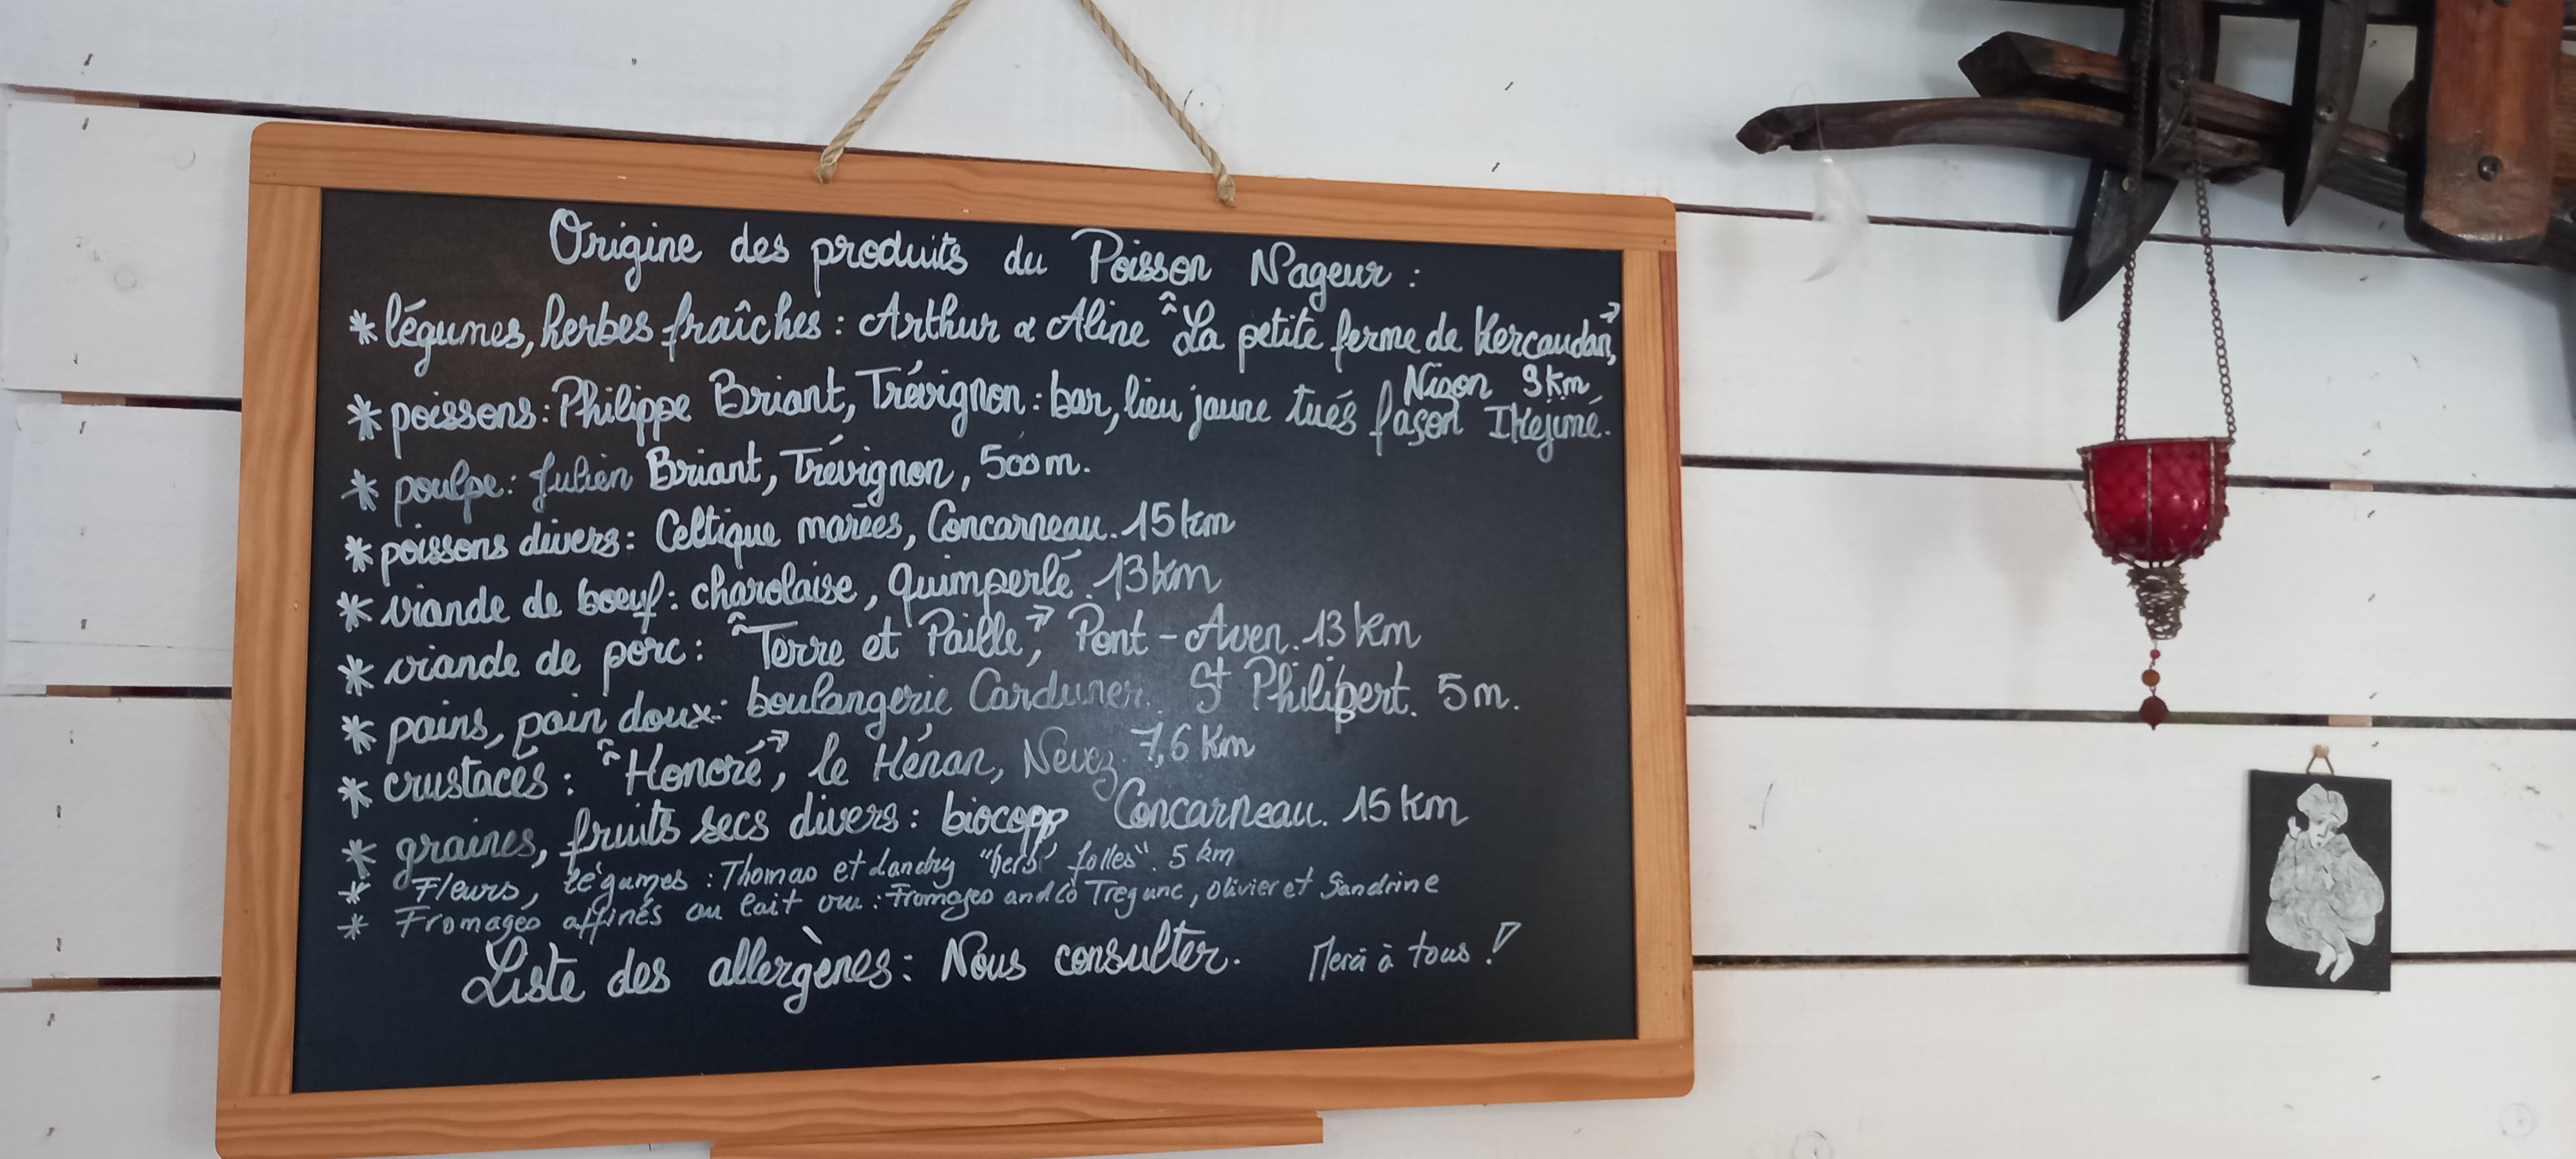 Origine des produits du Poisson Nageur :
* légumes, herbes fraîches : Arthur & Aline "La petite ferme de Kercaudan",
Nizon 9km
* poissons : Philippe Briant, Trévignon : bar, lieu jaune tués façon Ikéjimé.
* poulpe : Julien Briant, Trévignon, 500 m.
* poissons divers : Celtique marées, Concarneau. 15 km
* viande de boeuf : charolaise, Quimperlé. 13 km
* viande de porc : "Terre et Paille", Pont-Aven. 13 km
* pains, pain doux : boulangerie Carduner. St Philibert. 5 m.
* crustacés : "Honoré", le Hénan, Névez. 7,6 Km
* graines, fruits secs divers : biocopp Concarneau. 15 km
* Fleurs, légumes : Thomas et Landry "herb' folles". 5 km
* Fromages affinés au lait cru : Fromages and Co Tregunc, Olivier et Sandrine
Liste des allergènes : Nous consulter. Merci à tous !